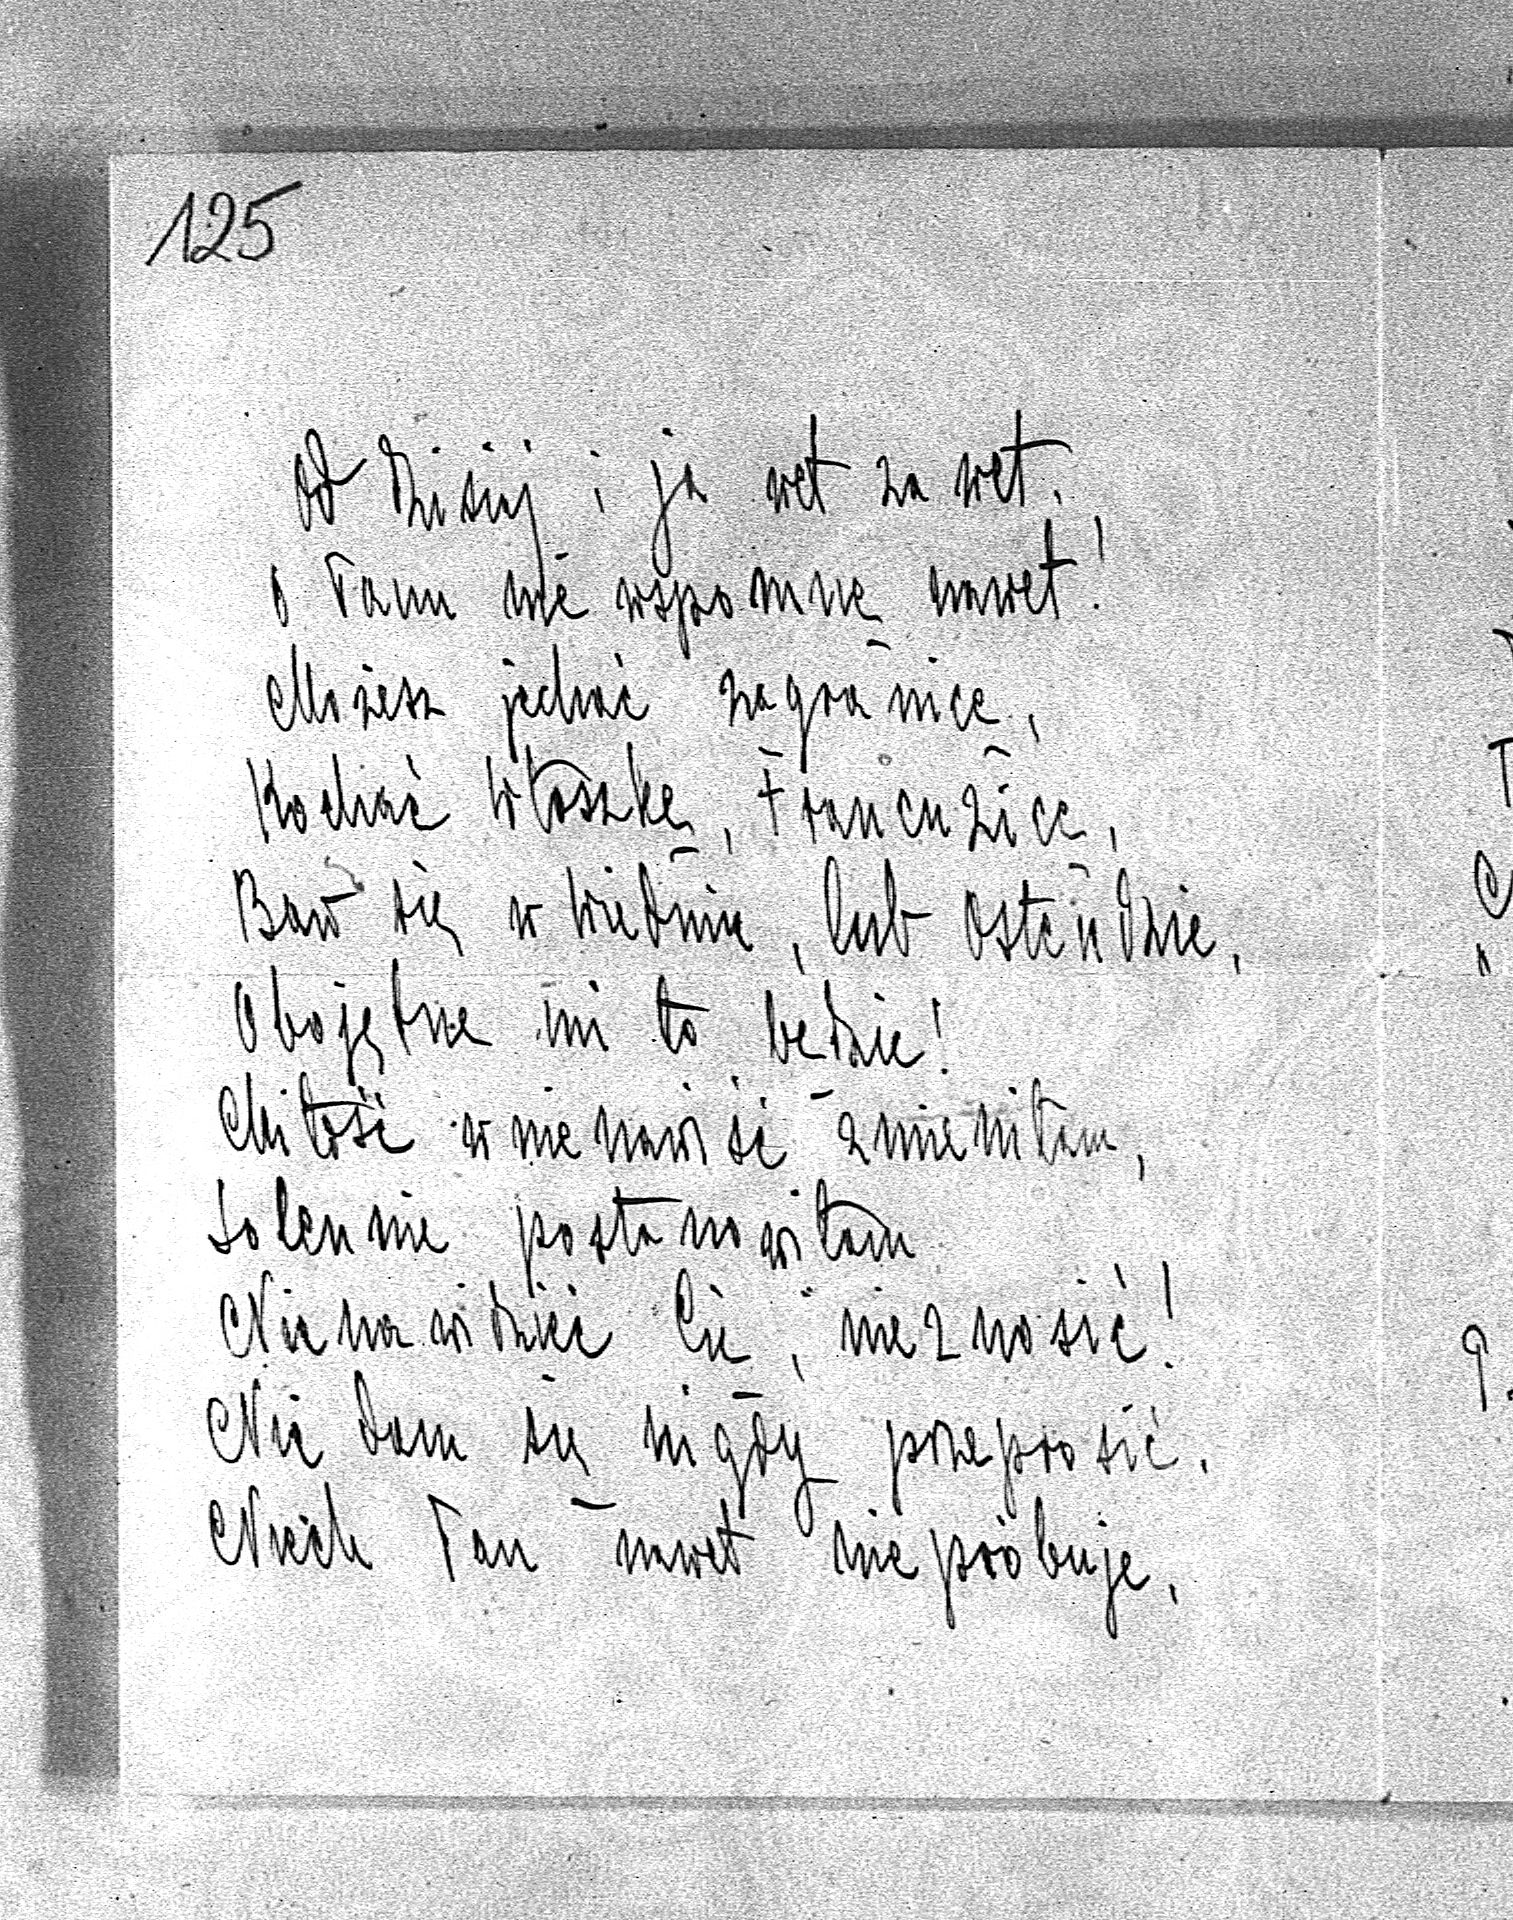 125
Od dzisiaj i ja wet za wet.
O Panu nie wspomnę nawet!
Możesz jechać zagranicę,
Kochać Włoszkę, Francuzicę,
Baw się w Wiedniu, lub Ostendzie,
Obojętne mi to będzie!
Miłość w nienawiść zmieniłam,
Solennie postanowiłam
Nienawidzieć Cię, nieznosić!
Nie dam się nigdy przeprosić.
Niech Pan nawet nie próbuje,